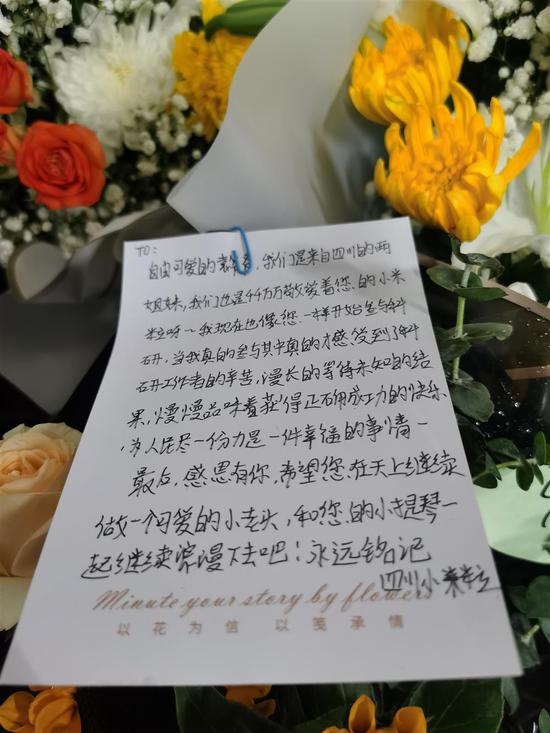 TO:
自由可爱的袁爷爷,我们是来自四川的两
姐妹,我们也是千千万万敬爱着您的小米
粒呀~我现在也像您一样开始参与科
研,当我真的参与其中真的才感受到了科
研工作者的辛苦,漫长的等待未知的结
果,慢慢品味着获得正确成功的快乐
,为人民尽一份力是一件幸福的事情~
最后,感恩有你,希望您在天上继续
做一个可爱的小老头,和您的小提琴一
起继续浪漫下去吧!永远铭记
四川小米粒
Minute your story by flowers
以花为信 以笺承情